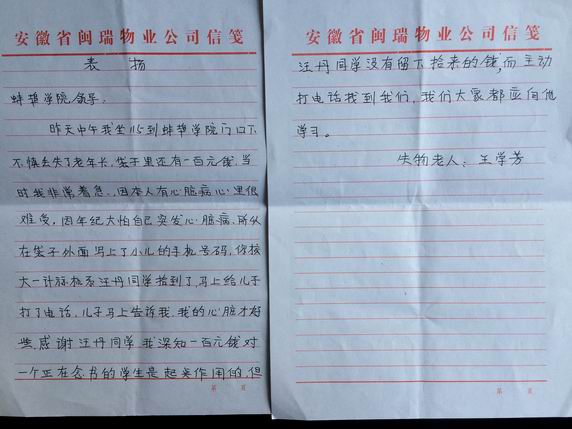 安徽省闽瑞物业公司信笺
表 扬
蚌埠学院领导:
昨天中午我坐115到蚌埠学院门口下
不慎丢失了老年卡,袋子里还有一百元钱,当
时我非常着急,因本人有心脏病心里很
难受,因年纪大怕自己突发心脏病,所以
在袋子外面写上了小儿的手机号码,你校
大一计科机系汪丹同学拾到了,马上给儿子
打了电话,儿子马上告诉我,我的心脏才好
些,感谢汪丹同学,我深知一百元钱对
一个正在念书的学生是起来作用的,但
第 页
安徽省闽瑞物业公司信笺
汪丹同学没有留下拾来的钱,而主动
打电话找到我们,我们大家都应向他
学习。
失物老人:王学芳
第 页